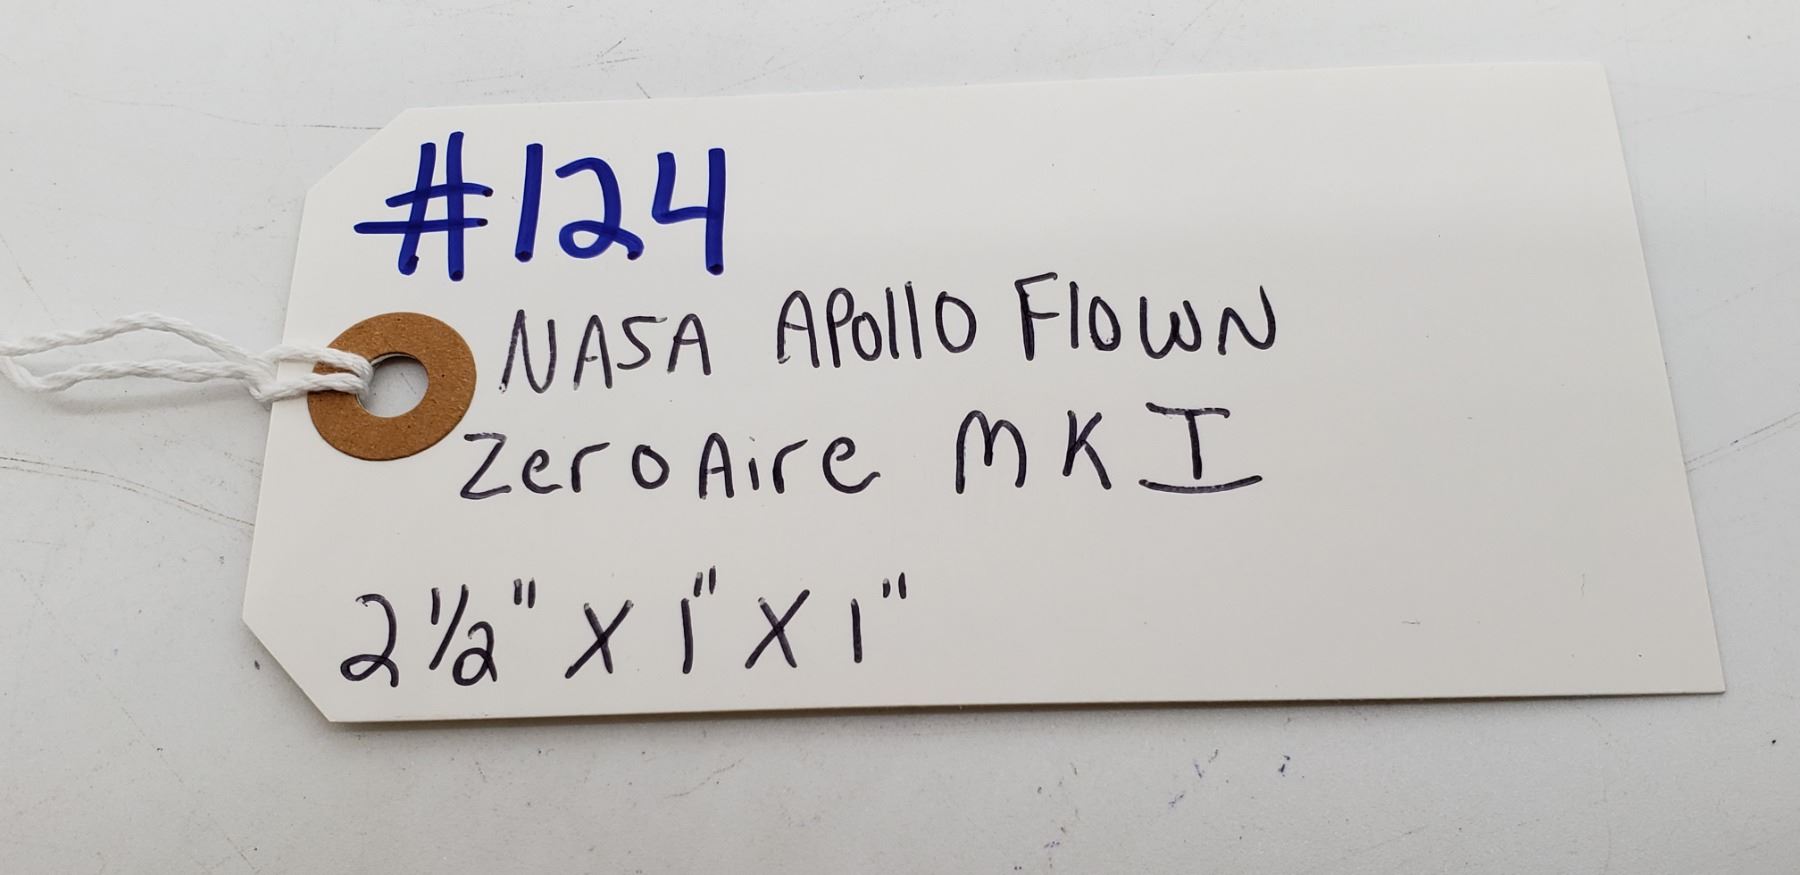 #124
NASA APollo Flown
Zero Aire MK I
2 1/2" X 1" X 1"